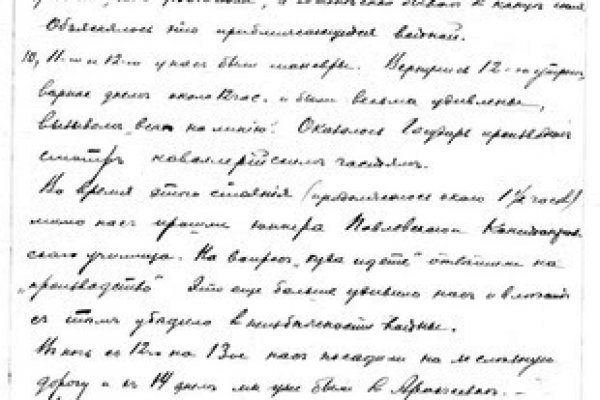 Объяснялось это приближающейся войной.
10, 11-го и 12-го у нас были маневры. Вернулись 12-го утром,
вернее днем около 12 час. и были весьма удивлены,
вызывом „всех на линию". Оказалось Государь производит
смотръ кавалерийским частям.
Во время этого стояния (продолжалось около 1½ часов)
мимо нас прошли юнкера Павловского
училища. На вопрос „куда идете" ответили на
„производство" Это еще больше удивило нас и
с тем убедило в неизбежности войны.
В ночь с 12го на 13ое нас посадили на железную
дорогу и в 14 днем мы уже были в